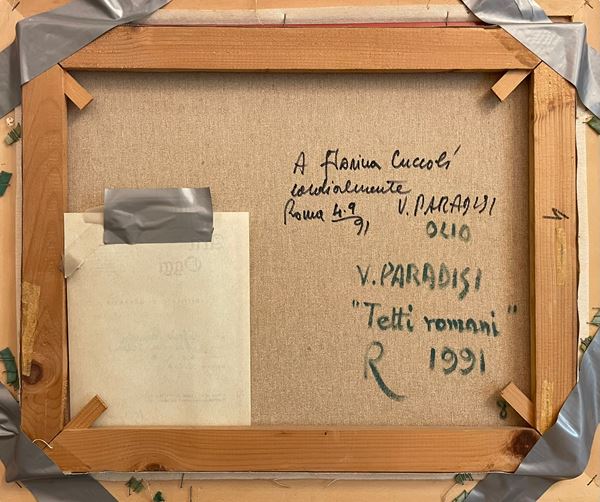 A Florina Cuccoli
cordialmente
Roma 4.9
91
V. PARADISI
OLIO
V. PARADISI
"Tetti romani"
R 1991
Oggi